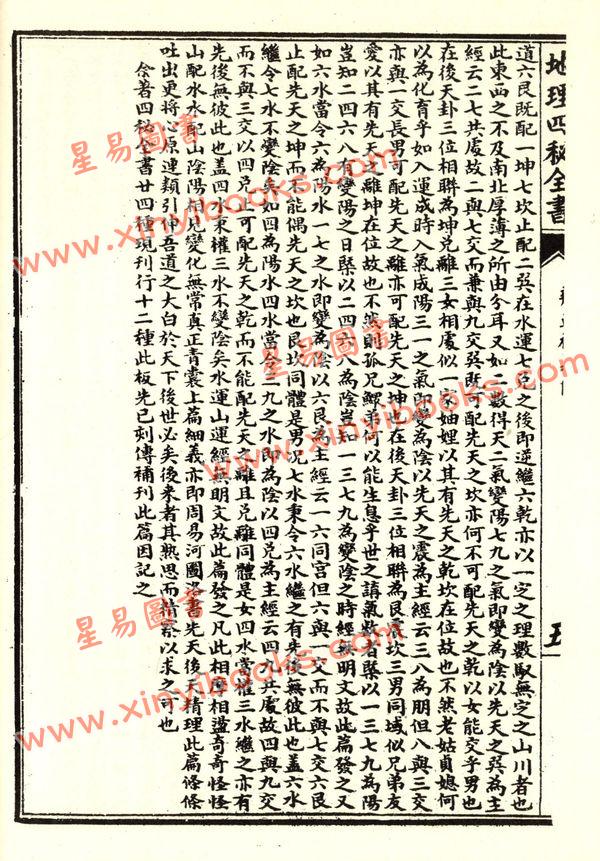 地理四秘全書
五
道六艮既配一坤七坎止配二巽在水運七兌之後即逆繼六乾亦以一定之理數馭無定之山川者也
此東西之不及南北厚薄之所由分耳又如二數得天二氣變陽七九之氣即變為陰以先天之巽為主
經云二七共處故二與七交而兼與九交巽既可配先天之坎亦何不可配先天之乾以女能交乎男也
在後天卦三位相聯為坤兌離三女相處似一家妯娌以其有先天之乾坎在位故也不然老姑貞媳何
以為化育乎如入運成時入氣成陽三一之氣即變為陰以先天之震為主經云三八為朋但八與三交
亦與一交長男可配先天之離亦可配先天之坤也在後天卦三位相聯為艮震坎三男同域似兄弟友
愛以其有先天之離坤在位故也不然則孤兄鰥弟何以能生息乎世之講氣數者槩以一三七九為陽
豈知二四六八有變陽之日槩以二四六八為陰豈知一三七九為變陰之時經無明文故此篇發之又
如六水當令六為陽水一七之水即變為陰以六艮為主經云一六同宮但六與一交而不與七交六艮
止配先天之坤而不能偶先天之坎也艮坎同體是男況七水秉令六水繼之有先後無彼此也盖六水
繼令七水不變陰矣如四為陽水四水當令三九之水即為陰以四兌為主經云四九共處故四與九交
而不與三交以四兌止可配先天之乾而不能配先天之離且兌離同體是女四水當權三水繼之亦有
先後無彼此也盖四水秉權三水不變陰矣水運山運經無明文故此篇發之凡此相摩相盪奇奇怪怪
山配水水配山陰陽相見變化無常真正青囊上篇細義亦即周易河圖洛書先天後天精理此篇條條
吐出更將心原連類引伸吾道之大白於天下後世必矣後來者其熟思而精察以求之可也
余著四秘全書廿四種現刊行十二種此板先已刻傳補刊此篇因記之
星易圖書
www.xinyibooks.com
星易圖書
www.xinyibooks.com
星易圖書
www.xinyibooks.com